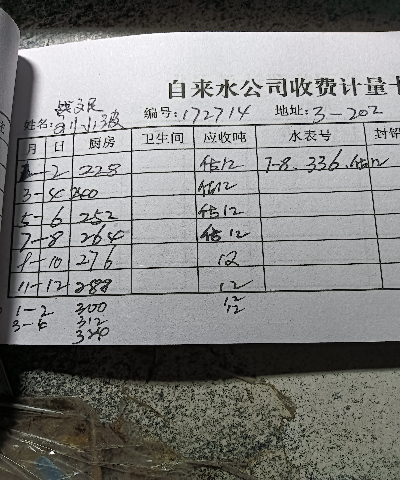 自来水公司收费计量卡
姓名: 编号:172714 地址:3-202
月 日 厨房 卫生间 应收吨 水表号 封铅
1-2 228 估12 7-8.336.估12
3-4 240 估12
5-6 252 估12
7-8 264 估12
9-10 276 12
11-12 288 12
1-2 300 12
3-6 312 12
320